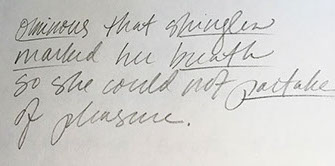 ominous that shingles
marked her breath
so she could not partake
of pleasure.